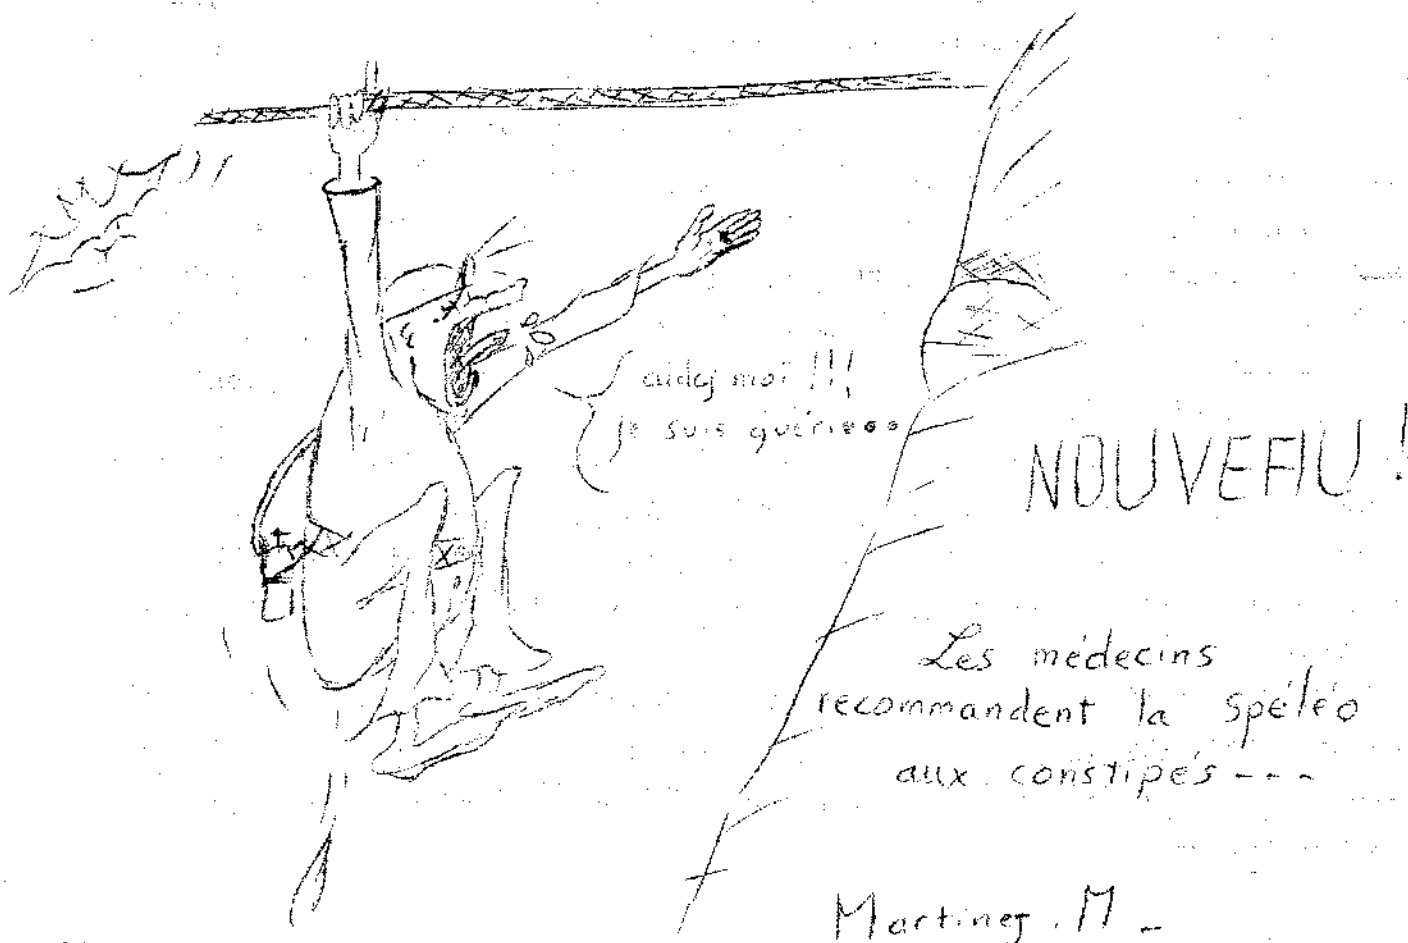 aidez moi !!!
je suis guérie...
NOUVEAU !
Les médecins
recommandent la spéléo
aux constipés - - -
Martinez . M -